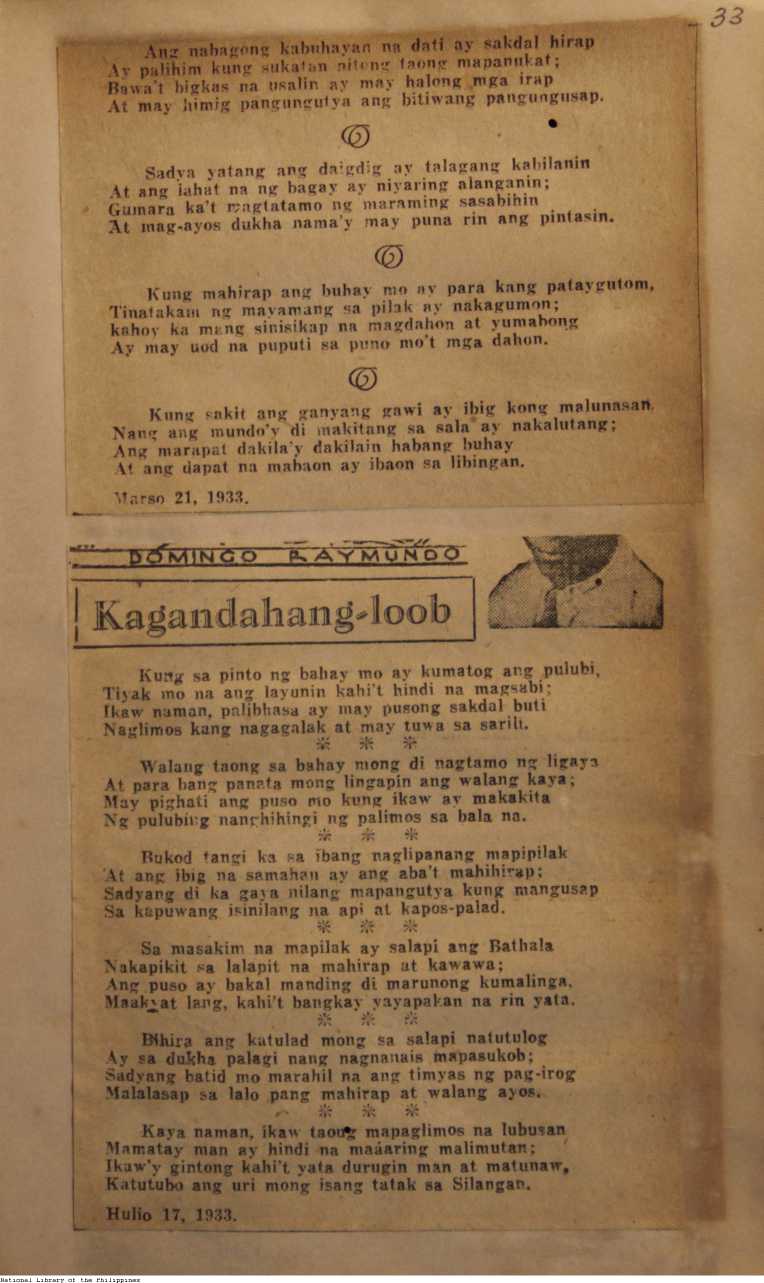 33
Ang nabagong kabuhayan na dati ay sakdal hirap
Ay palihim kung sukatan nitong taong mapanukat;
Bawa't bigkas na usalin ay may halong mga irap
At may himig pangungutya ang bitiwang pangungusap.
Sadya yatang ang daigdig ay talagang kabilanin
At ang lahat na ng bagay ay niyaring alanganin;
Gumara ka't magtatamo ng maraming sasabihin
At mag-ayos dukha nama'y may puna rin ang pintasin.
Kung mahirap ang buhay mo ay para kang pataygutom,
Tinatakam ng mayamang sa pilak ay nakagumon;
kahoy ka mang sinisikap na magdahon at yumabong
Ay may uod na puputi sa puno mo't mga dahon.
Kung sakit ang ganyang gawi ay ibig kong malunasan,
Nang ang mundo'y di makitang sa sala ay nakalutang;
Ang marapat dakila'y dakilain habang buhay
At ang dapat na mabaon ay ibaon sa libingan.
Marso 21, 1933.
DOMINGO RAYMUNDO
Kagandahang-loob
Kung sa pinto ng bahay mo ay kumatog ang pulubi,
Tiyak mo na ang layunin kahi't hindi na magsabi;
Ikaw naman, palibhasa ay may pusong sakdal buti
Naglimos kang nagagalak at may tuwa sa sarili.
* * *
Walang taong sa bahay mong di nagtamo ng ligaya
At para bang panata mong lingapin ang walang kaya;
May pighati ang puso mo kung ikaw ay makakita
Ng pulubing nanghihingi ng palimos sa bala na.
* * *
Bukod tangi ka sa ibang naglipanang mapipilak
At ang ibig na samahan ay ang aba't mahihirap;
Sadyang di ka gaya nilang mapangutya kung mangusap
Sa kapuwang isinilang na api at kapos-palad.
* * *
Sa masakim na mapilak ay salapi ang Bathala
Nakapikit sa lalapit na mahirap at kawawa;
Ang puso ay bakal manding di marunong kumalinga,
Maakyat lang, kahi't bangkay yayapakan na rin yata.
* * *
Bihira ang katulad mong sa salapi natutulog
Ay sa dukha palagi nang nagnanais mapasukob;
Sadyang batid mo marahil na ang timyas ng pag-irog
Malalasap sa lalo pang mahirap at walang ayos.
* * *
Kaya naman, ikaw taong mapaglimos na lubusan
Mamatay man ay hindi na maaaring malimutan;
Ikaw'y gintong kahi't yata durugin man at matunaw,
Katutubo ang uri mong isang tatak sa Silangan.
Hulio 17, 1933.
National Library of the Philippines